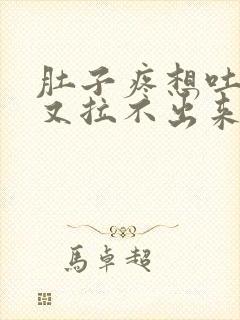 肚子疼想吐
又拉不出来
馬卓超